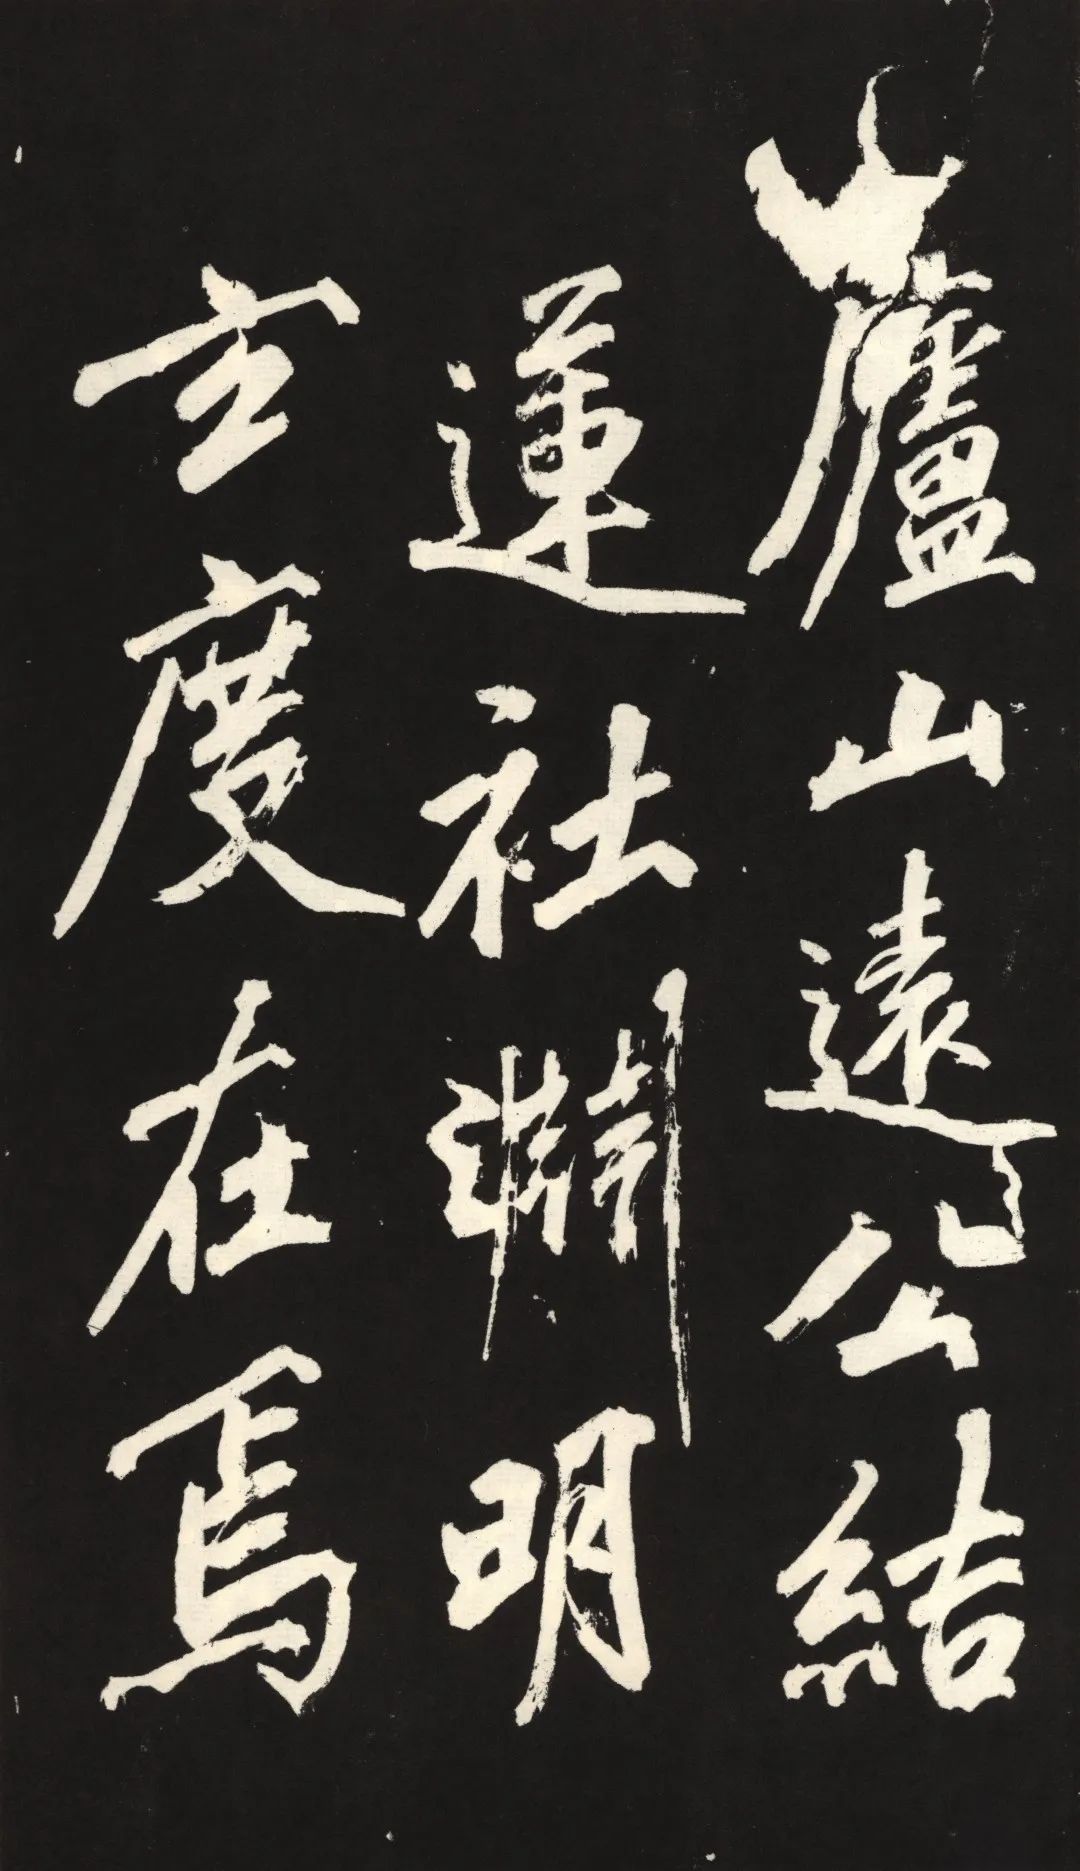 廬山遠公結
蓮社淵明
玄度在焉